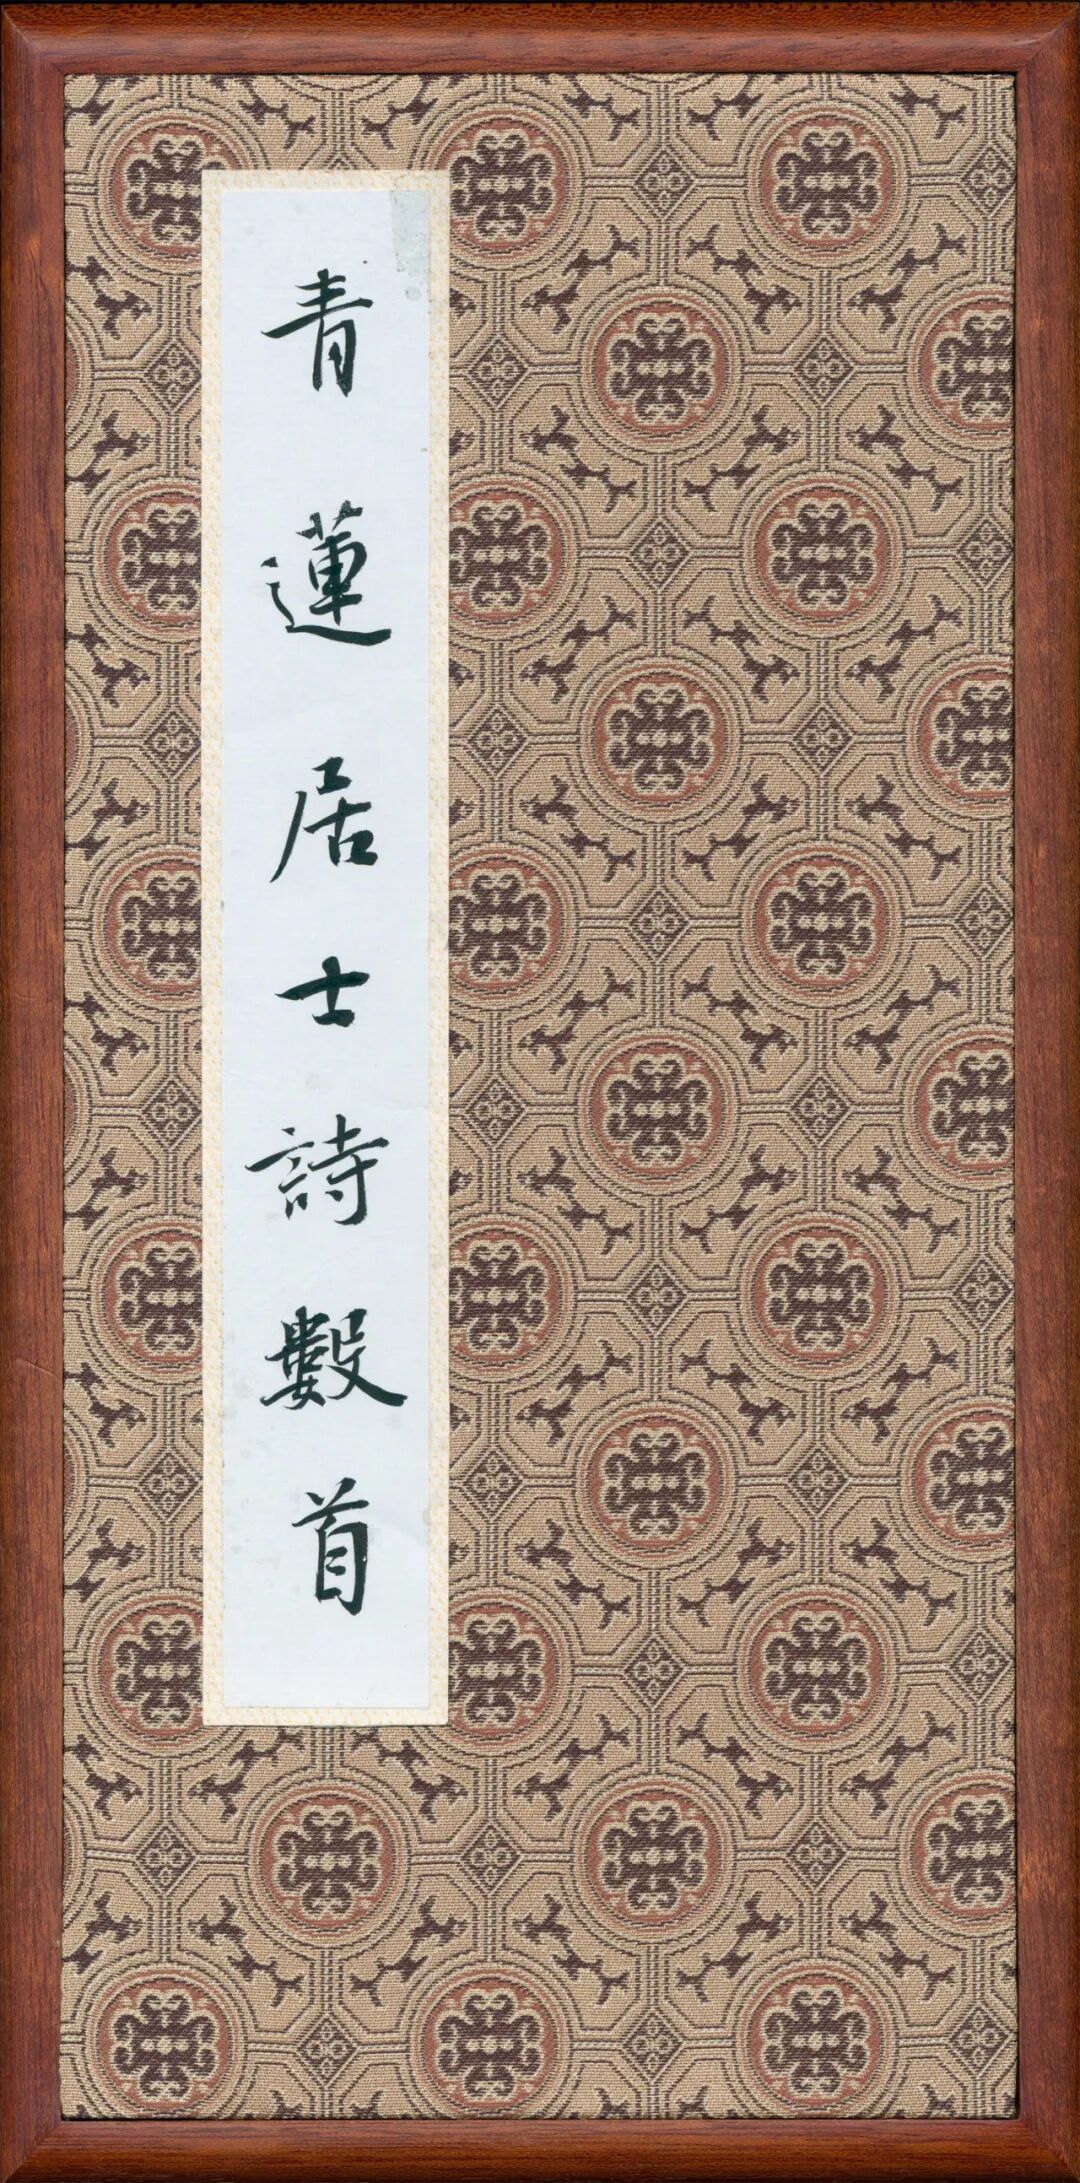 青蓮居士詩數首